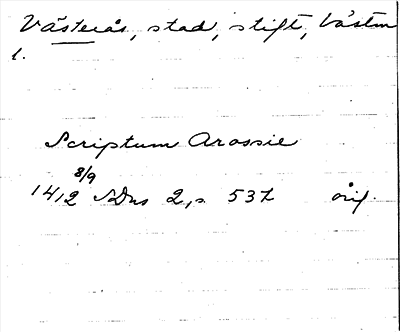 Västerås, stad, stift, Västm
l.
Scriptum Arossie
1412 8/9 SDns 2, s 537 orig.